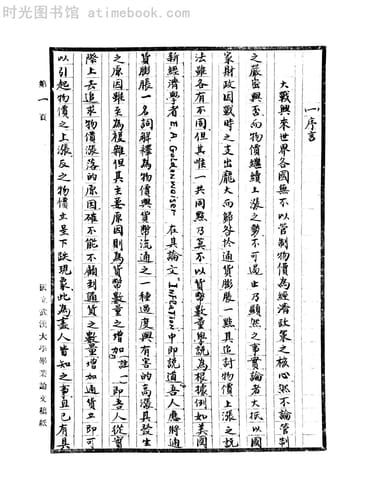 时光图书馆 atimebook.com
(一)序言
大戰興來世界各國無不以管制物價為經濟政策之核心然不論管制
之嚴密與否而物價繼續上漲之勢不可遏止乃顯然之事實論者大抵以國
家財政因戰時之支出龐大而歸咎於通貨膨脹一點其追討物價上漲之說
法雖各有不同但其唯一共同點乃莫不以貨幣數量學說為根據例如美國
新經濟學者M.A. Goldenweiser在其論文"Inflation"中即說道吾人應將通
貨膨脹一名詞解釋為物價與貨幣流通之一種過度與有害的高漲其發生
之原因雖至為複雜但其主要原因則為貨幣數量之增加(註一)即吾人從實
際上去追求物價漲落的原因確不能不顧到通貨之數量增加通貨立即可
以引起物價之上漲反之物價立呈下跌現象此為盡人皆知之事且已有具
第一頁
國立武漢大學畢業論文稿紙